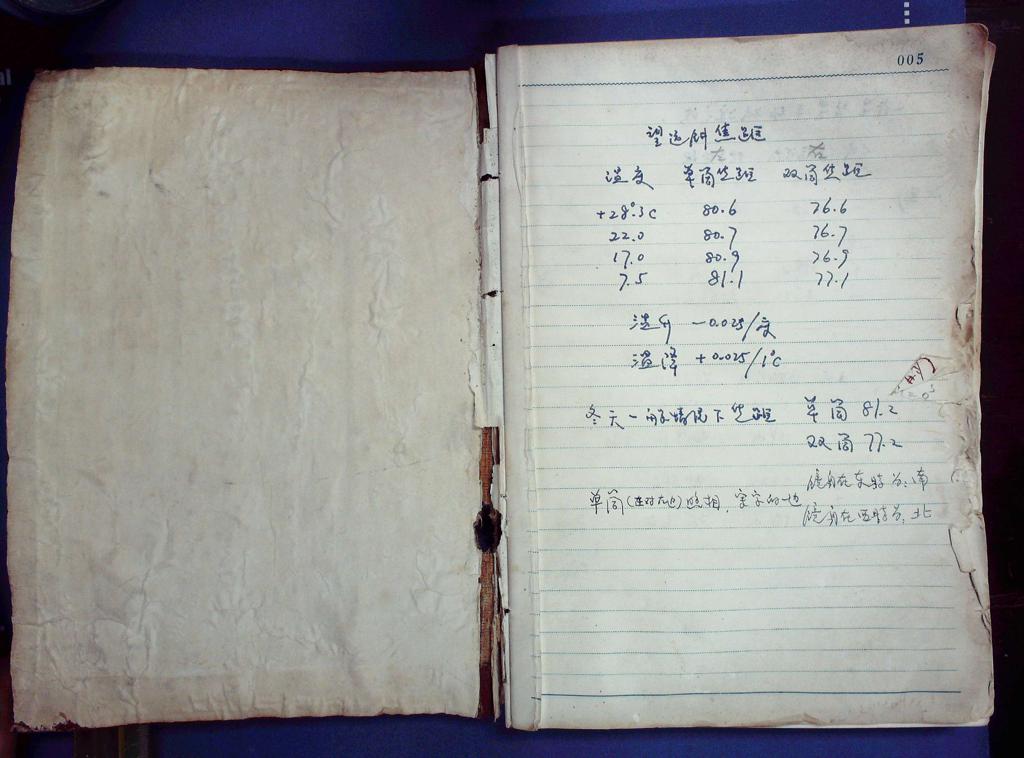 005
望远镜焦距
温度 单筒焦距 双筒焦距
+28°.3C 80.6 76.6
22.0 80.7 76.7
17.0 80.9 76.9
7.5 81.1 77.1
温升 -0.025/度
温降 +0.025/1°C
冬天一般情况下焦距 单筒 81.2
双筒 77.2
镜筒在东时为:南
单筒(在对左边)照相, 写字的一边
镜筒在西时为:北